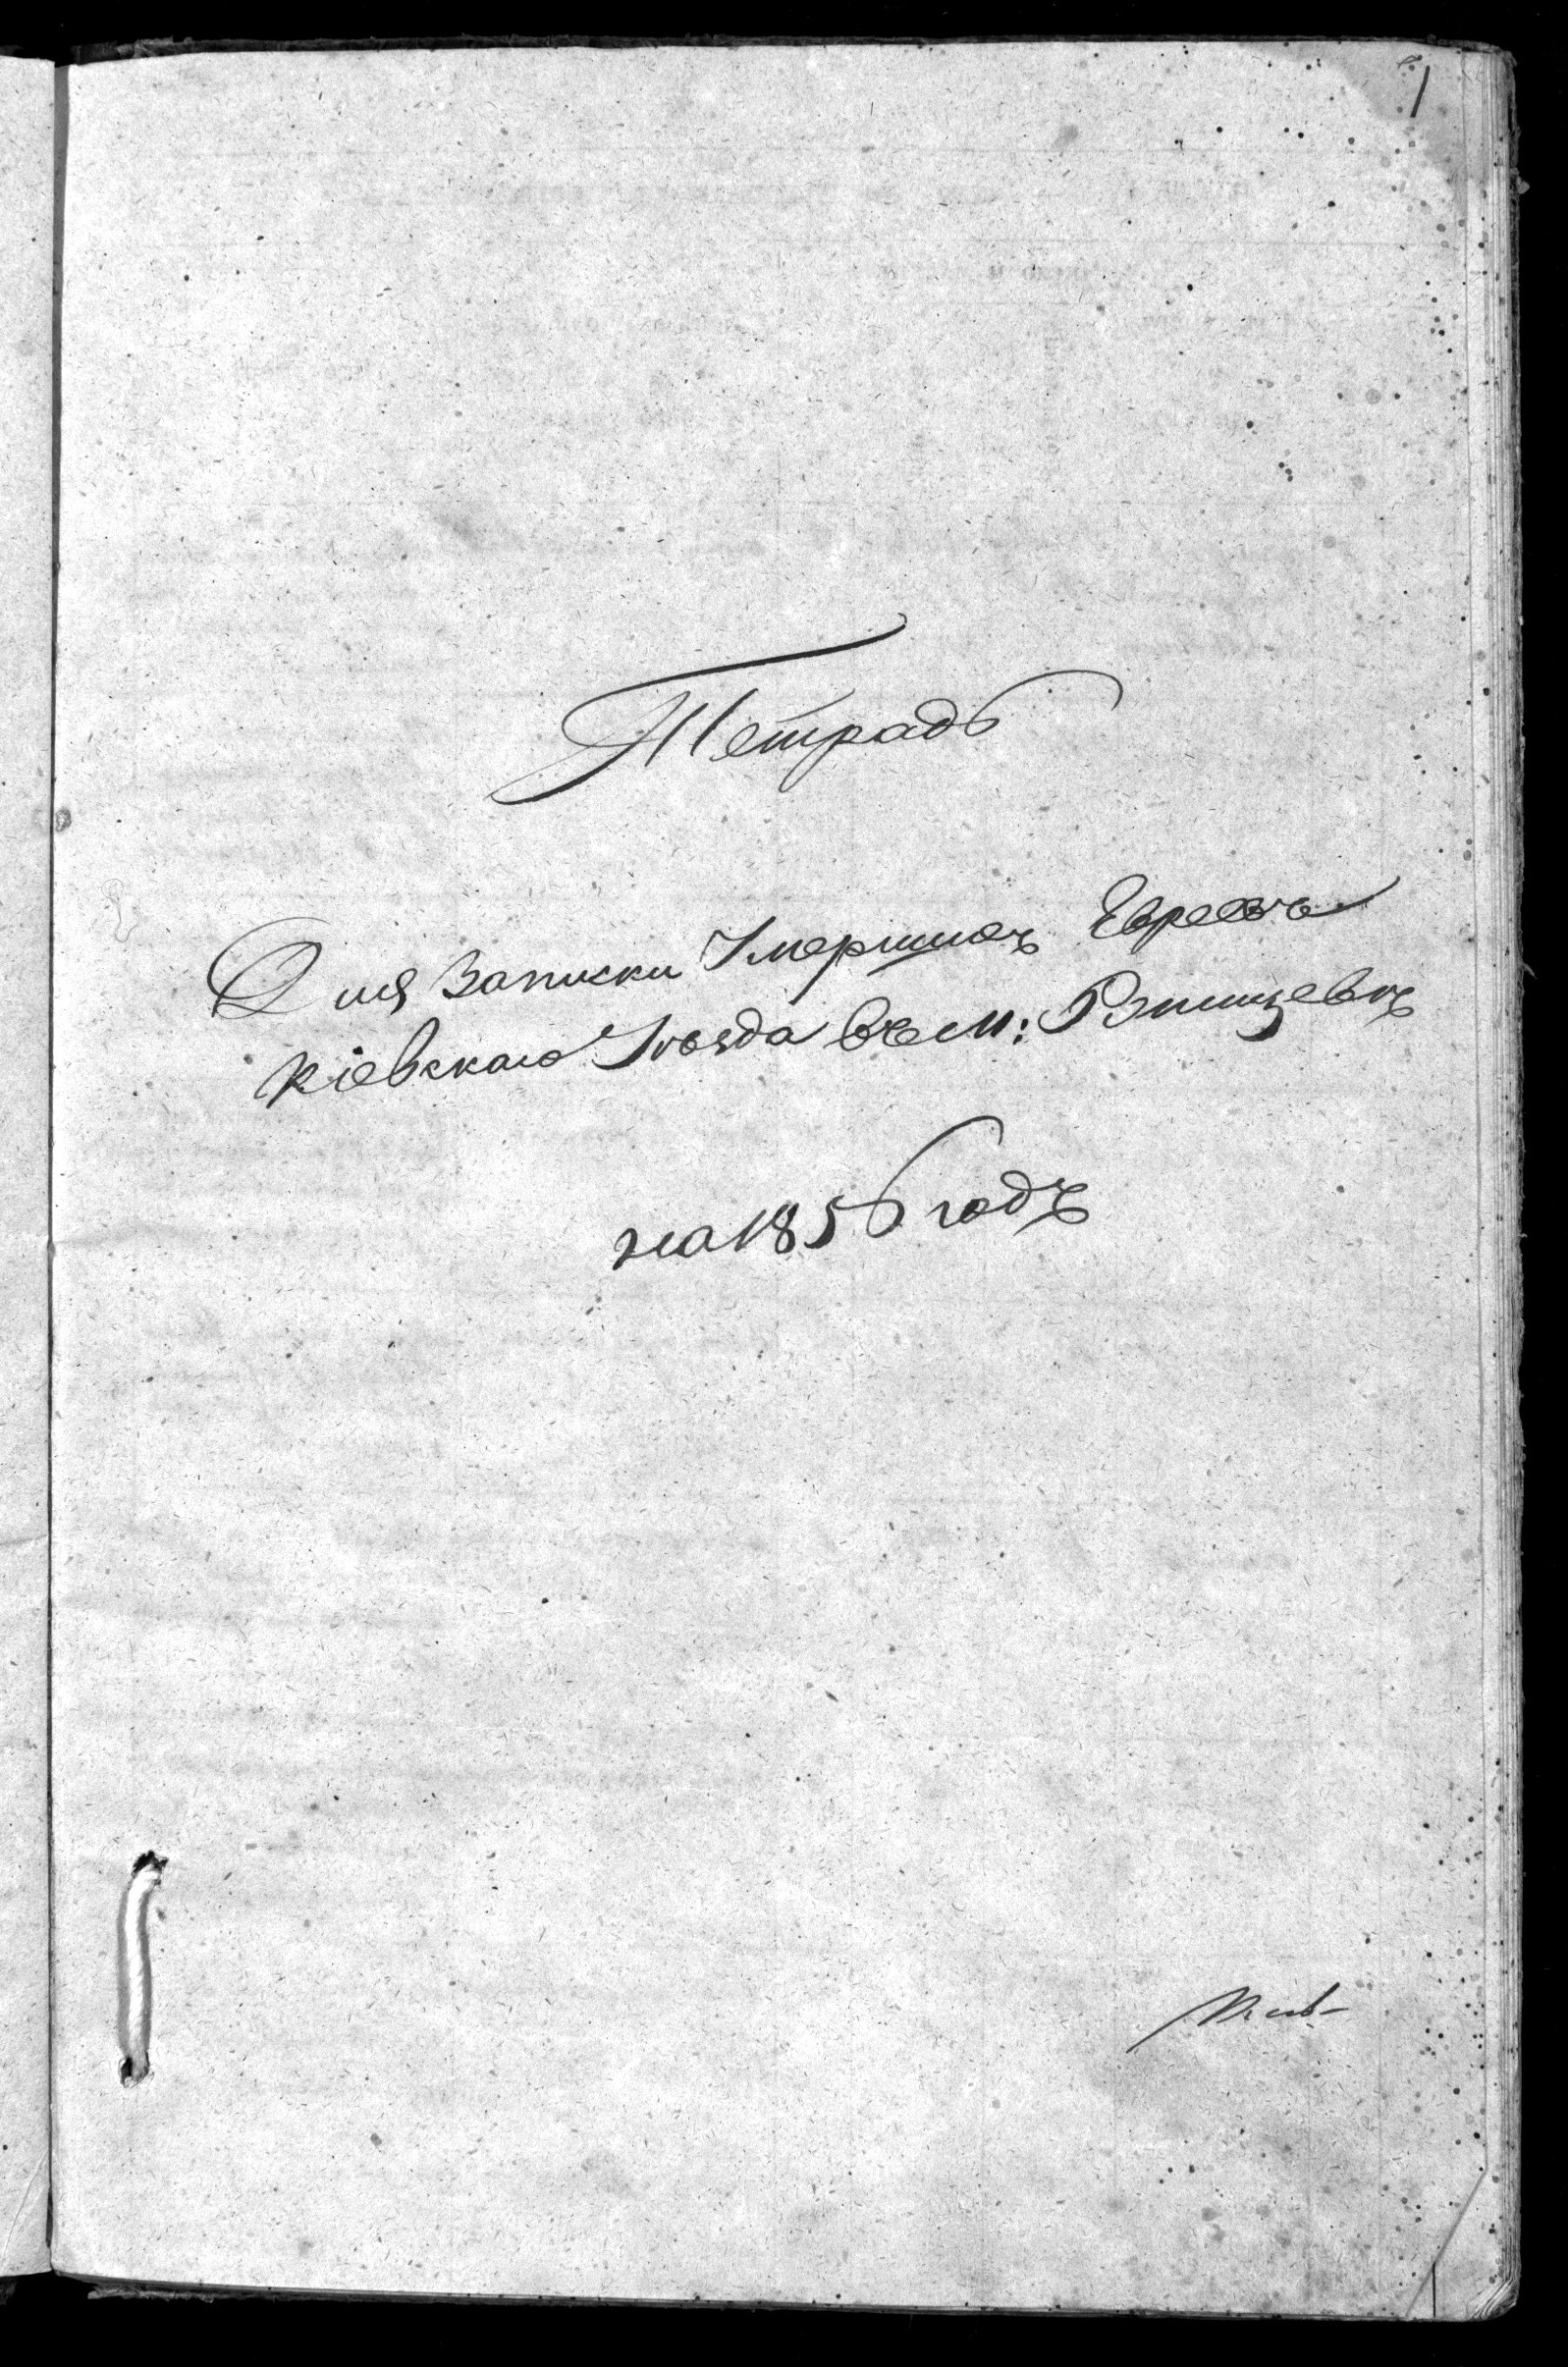 1
Тетрадь
Для Записки Умершихъ Евреевъ
Кіевскаго Уѣзда въ м: Ржищевѣ
на 1856 годъ